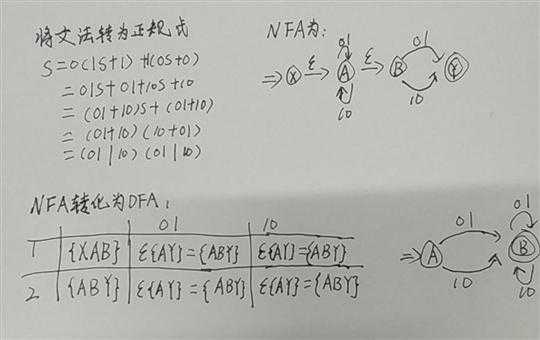 将文法转为正规式
S=0(1S+1)+1(0S+0)
=01S+01+10S+10
=(01+10)S+(01+10)
=(01+10)(10+01)
=(01|10)(01|10)
NFA为:
01 01
⇒ X ε A ε B Y
10 10
NFA转化为DFA:
01 10
1 {XAB} ε{AY}={ABY} ε{AY}={ABY}
2 {ABY} ε{AY}={ABY} ε{AY}={ABY}
01 01
⇒ A B
10 10